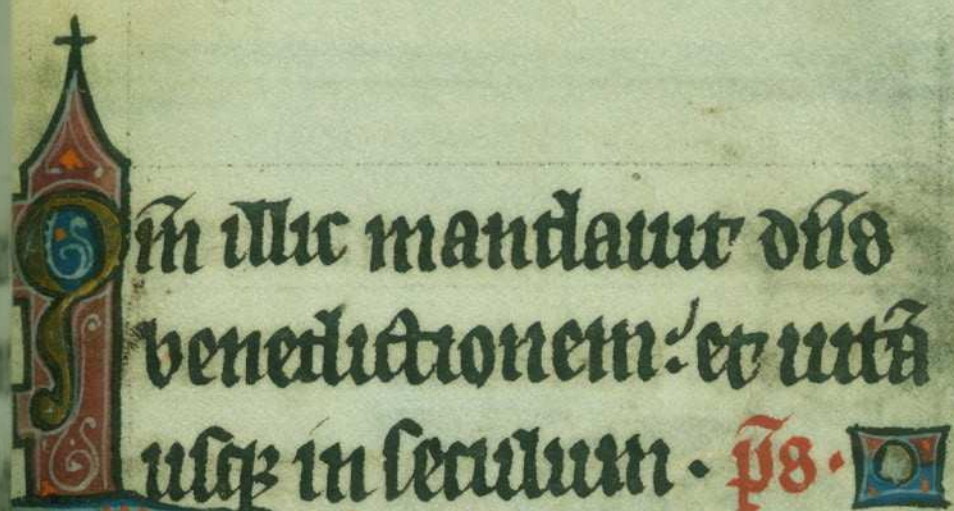 Qm̄ illic mandauit dn̄s
benedictionem: et uitā
usqꝫ in seculum · p̄s ·